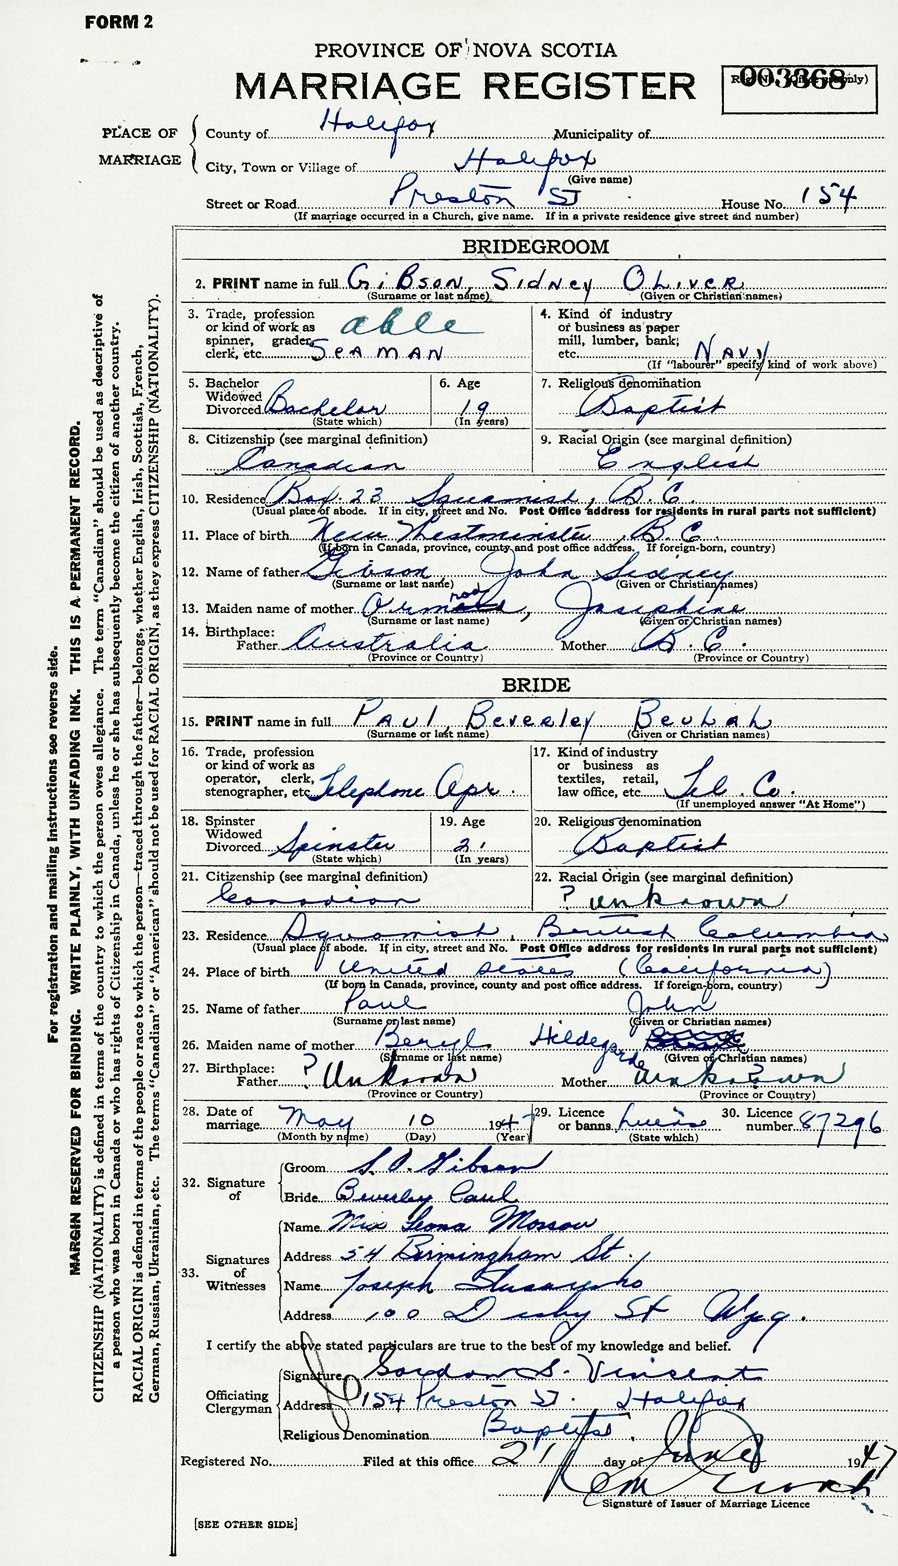 FORM 2
PROVINCE OF NOVA SCOTIA
MARRIAGE REGISTER
Reg. No. (Office use only)
003368
PLACE OF MARRIAGE
County of Halifax Municipality of
City, Town or Village of Halifax
(Give name)
Street or Road Preston St House No. 154
(If marriage occurred in a Church, give name. If in a private residence give street and number)
BRIDEGROOM
2. PRINT name in full GiBSON, SidNEY OLivER
(Surname or last name) (Given or Christian names)
3. Trade, profession or kind of work as spinner, grader, clerk, etc. able SEAMAN
4. Kind of industry or business as paper mill, lumber, bank, etc. NAVY
(If "labourer" specify kind of work above)
5. Bachelor Widowed Divorced Bachelor
(State which)
6. Age 19
(In years)
7. Religious denomination Baptist
8. Citizenship (see marginal definition) Canadian
9. Racial Origin (see marginal definition) English
10. Residence Box 23 Squamish, B.C.
(Usual place of abode. If in city, street and No. Post Office address for residents in rural parts not sufficient)
11. Place of birth New Westminster, B.C.
(If born in Canada, province, county and post office address. If foreign-born, country)
12. Name of father Gibson, John Sidney
(Surname or last name) (Given or Christian names)
13. Maiden name of mother Josephine
(Surname or last name) (Given or Christian names)
14. Birthplace: Father Australia Mother B.C.
(Province or Country) (Province or Country)
BRIDE
15. PRINT name in full PAUL, BEVERLEY BEULAH
(Surname or last name) (Given or Christian names)
16. Trade, profession or kind of work as operator, clerk, stenographer, etc. Telephone Opr.
17. Kind of industry or business as textiles, retail, law office, etc. Tel. Co.
(If unemployed answer "At Home")
18. Spinster Widowed Divorced Spinster
(State which)
19. Age 21
(In years)
20. Religious denomination Baptist
21. Citizenship (see marginal definition) Canadian
22. Racial Origin (see marginal definition) ? unknown
23. Residence Squamish, British Columbia
(Usual place of abode. If in city, street and No. Post Office address for residents in rural parts not sufficient)
24. Place of birth United States (California)
(If born in Canada, province, county and post office address. If foreign-born, country)
25. Name of father Paul John
(Surname or last name) (Given or Christian names)
26. Maiden name of mother Beryl Hildegarde
(Surname or last name) (Given or Christian names)
27. Birthplace: Father ? Unknown Mother unknown ?
(Province or Country) (Province or Country)
28. Date of marriage May 10 1947
(Month by name) (Day) (Year)
29. Licence or banns License
(State which)
30. Licence number 87296
32. Signature of
Groom S. O. Gibson
Bride Beverley Paul
33. Signatures of Witnesses
Name Miss Leona
Address 54 Birmingham St.
Name Joseph
Address 100 St Wpg.
I certify the above stated particulars are true to the best of my knowledge and belief.
Officiating Clergyman
Signature Gordon S. Vincent
Address 154 Preston St. Halifax
Religious Denomination Baptist
Registered No. Filed at this office 21 day of June 1947
Signature of Issuer of Marriage Licence
[SEE OTHER SIDE]
For registration and mailing instructions see reverse side.
MARGIN RESERVED FOR BINDING. WRITE PLAINLY, WITH UNFADING INK. THIS IS A PERMANENT RECORD.
CITIZENSHIP (NATIONALITY) is defined in terms of the country to which the person owes allegiance. The term "Canadian" should be used as descriptive of
a person who was born in Canada or who has rights of Citizenship in Canada, unless he or she has subsequently become the citizen of another country.
RACIAL ORIGIN is defined in terms of the people or race to which the person—traced through the father—belongs, whether English, Irish, Scottish, French,
German, Russian, Ukrainian, etc. The terms "Canadian" or "American" should not be used for RACIAL ORIGIN, as they express CITIZENSHIP (NATIONALITY).